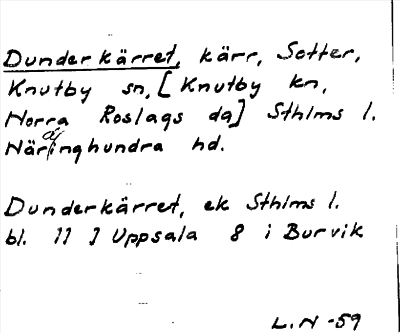 Dunderkärret, kärr, Sotter,
Knutby sn, [Knutby kn,
Norra Roslags dg] Sthlms l.
Närdinghundra hd.
Dunderkärret, ek Sthlms l.
bl. 11 J Uppsala 8 i Burvik
L.N -59